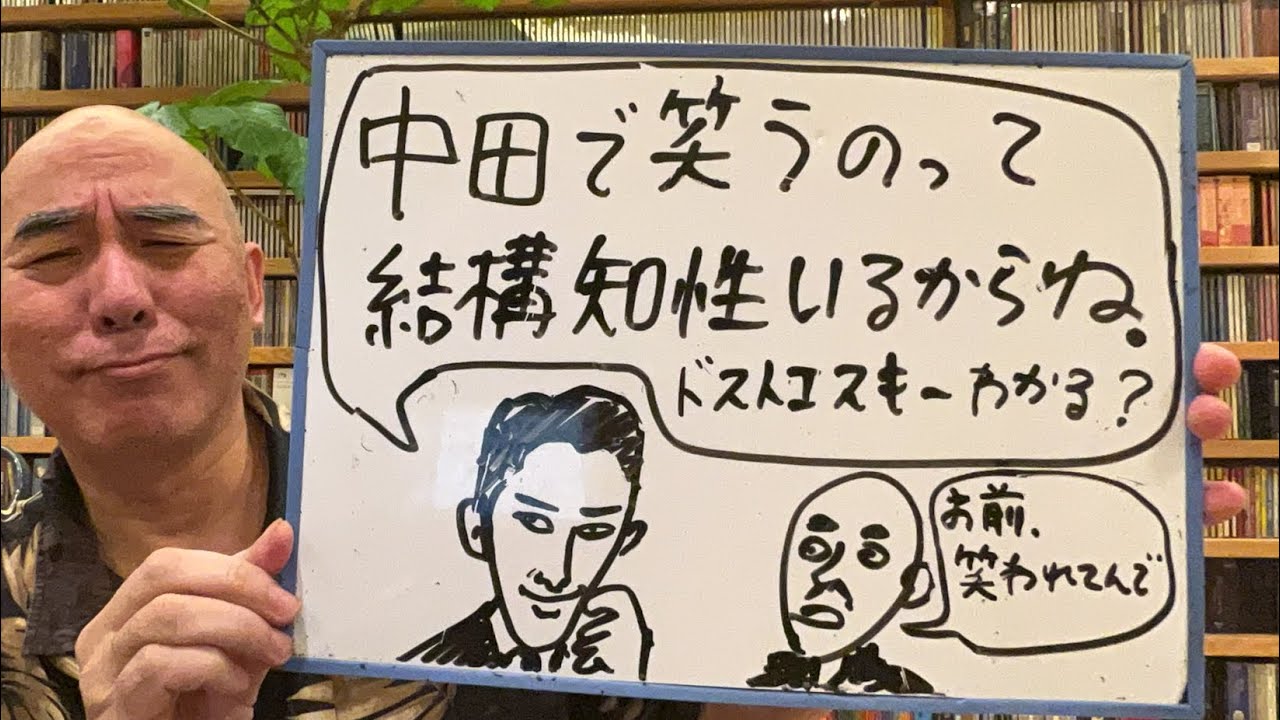 中田で笑うのって
結構知性いるからね。
ドストエスキーわかる？
お前、
笑われてんで